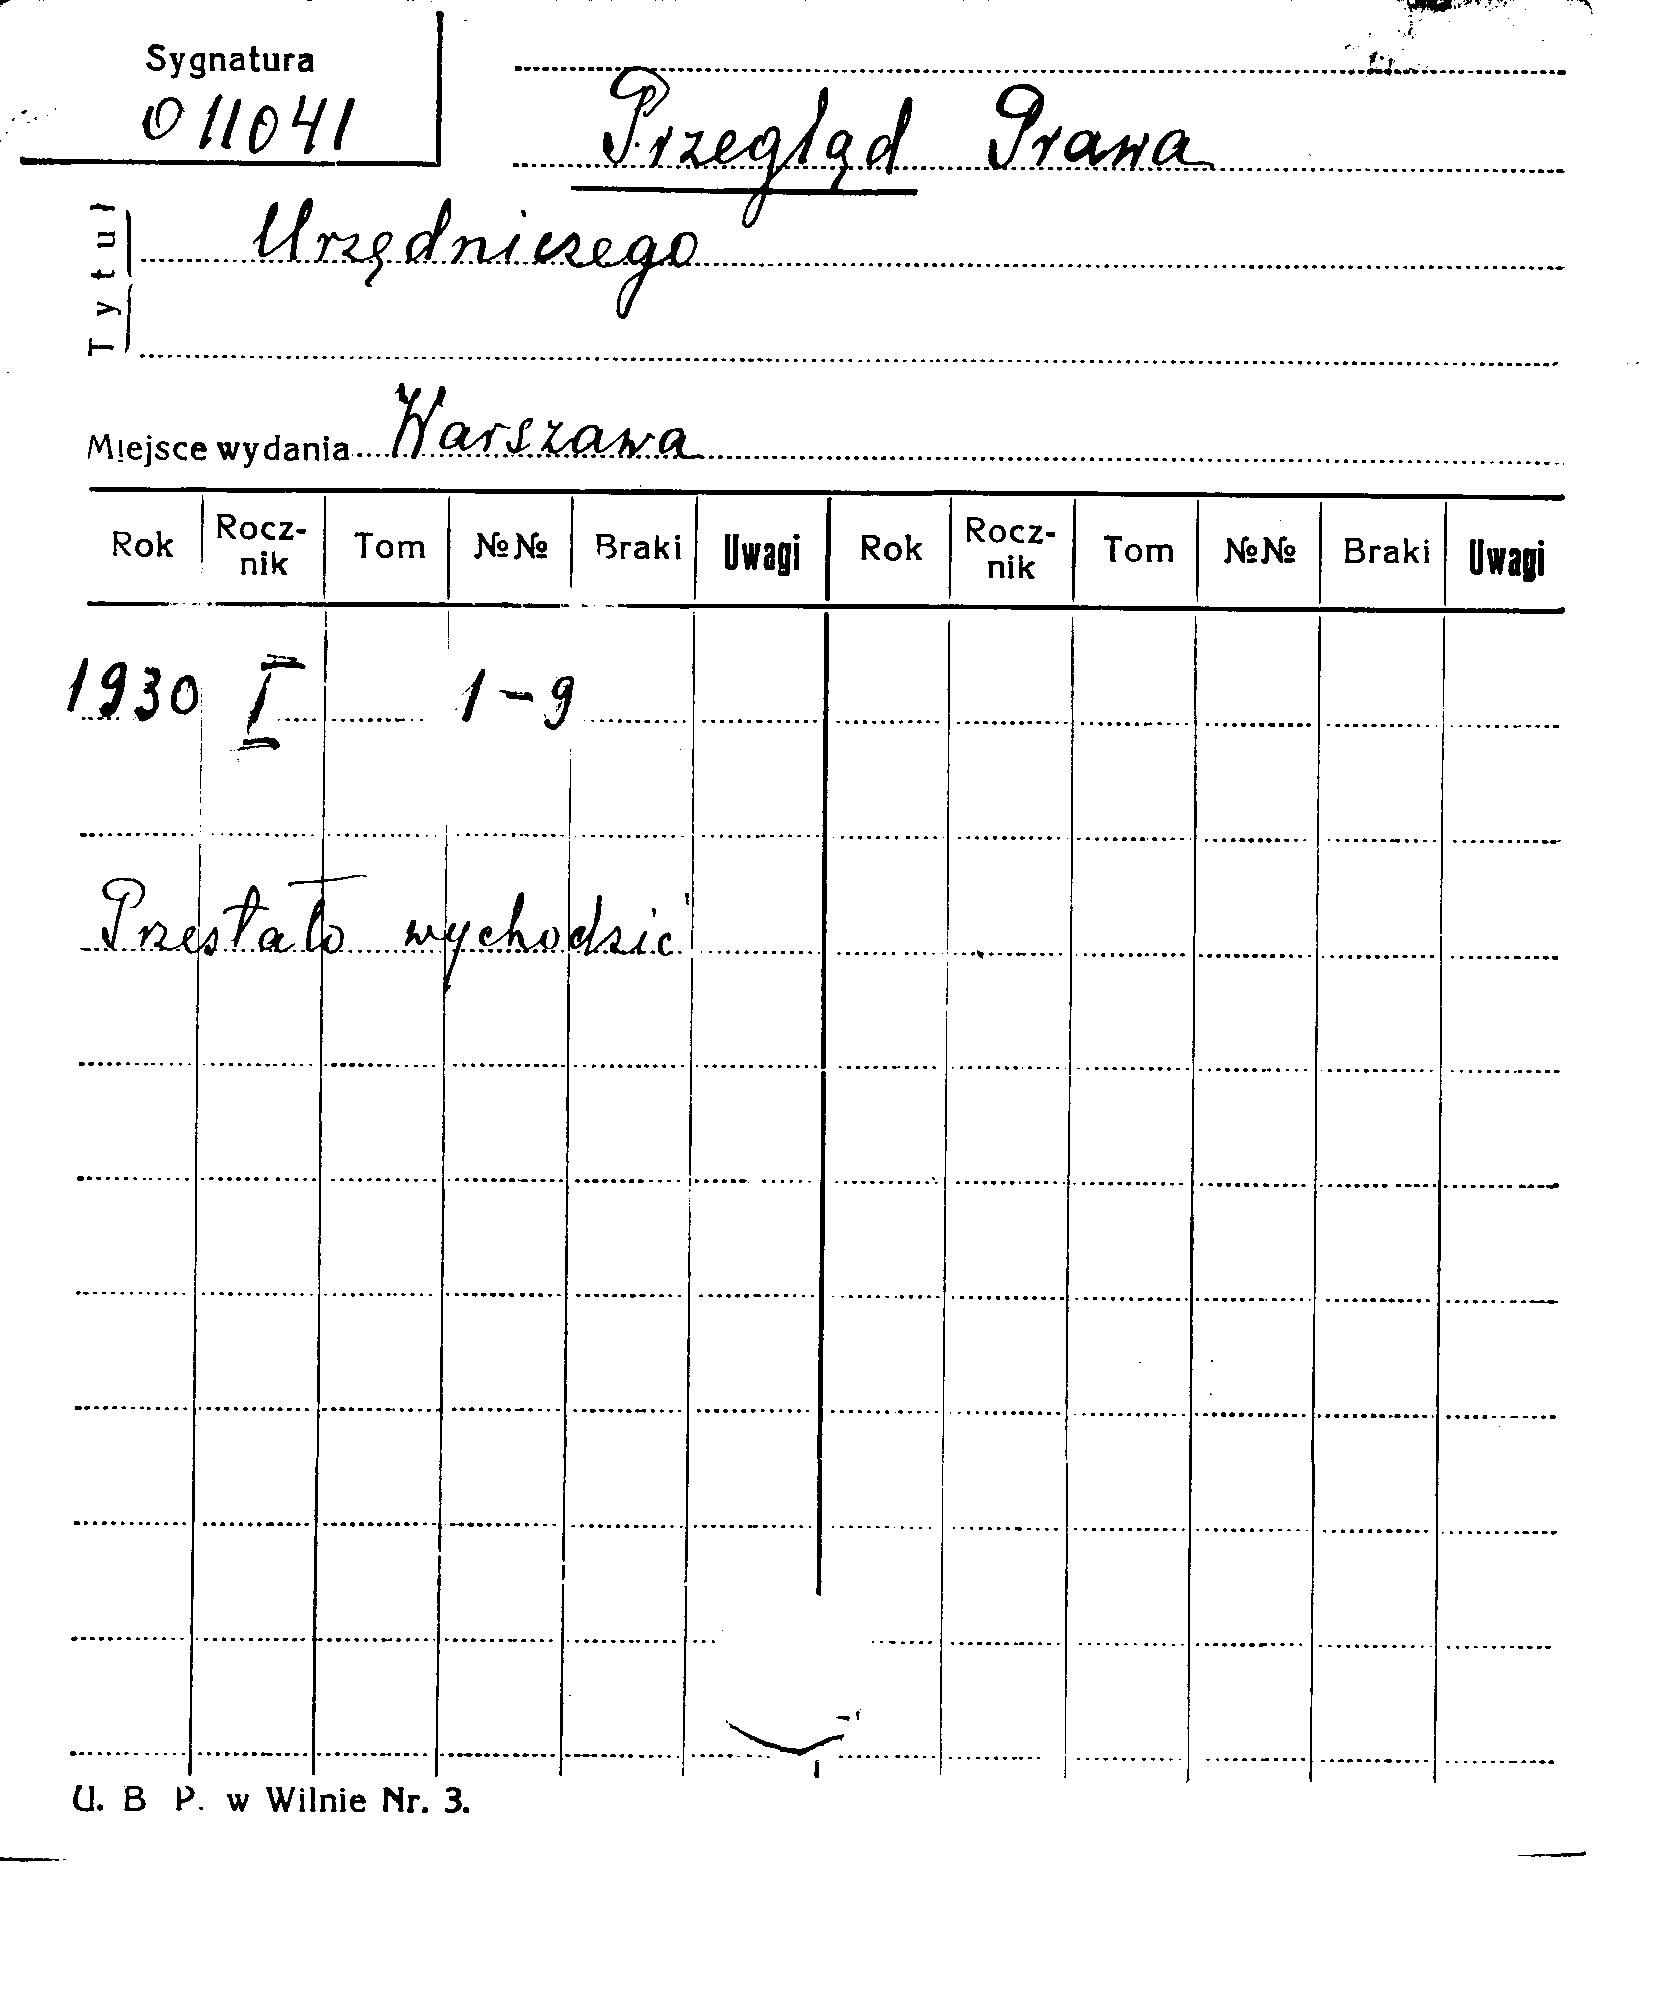 Sygnatura
011041
Przegląd Prawa
Tytuł
Urzędniczego
Miejsce wydania Warszawa
Rok Rocz-nik Tom №№ Braki Uwagi Rok Rocz-nik Tom №№ Braki Uwagi
1930 I 1-9
Przestało wychodzić
U. B P. w Wilnie Nr. 3.